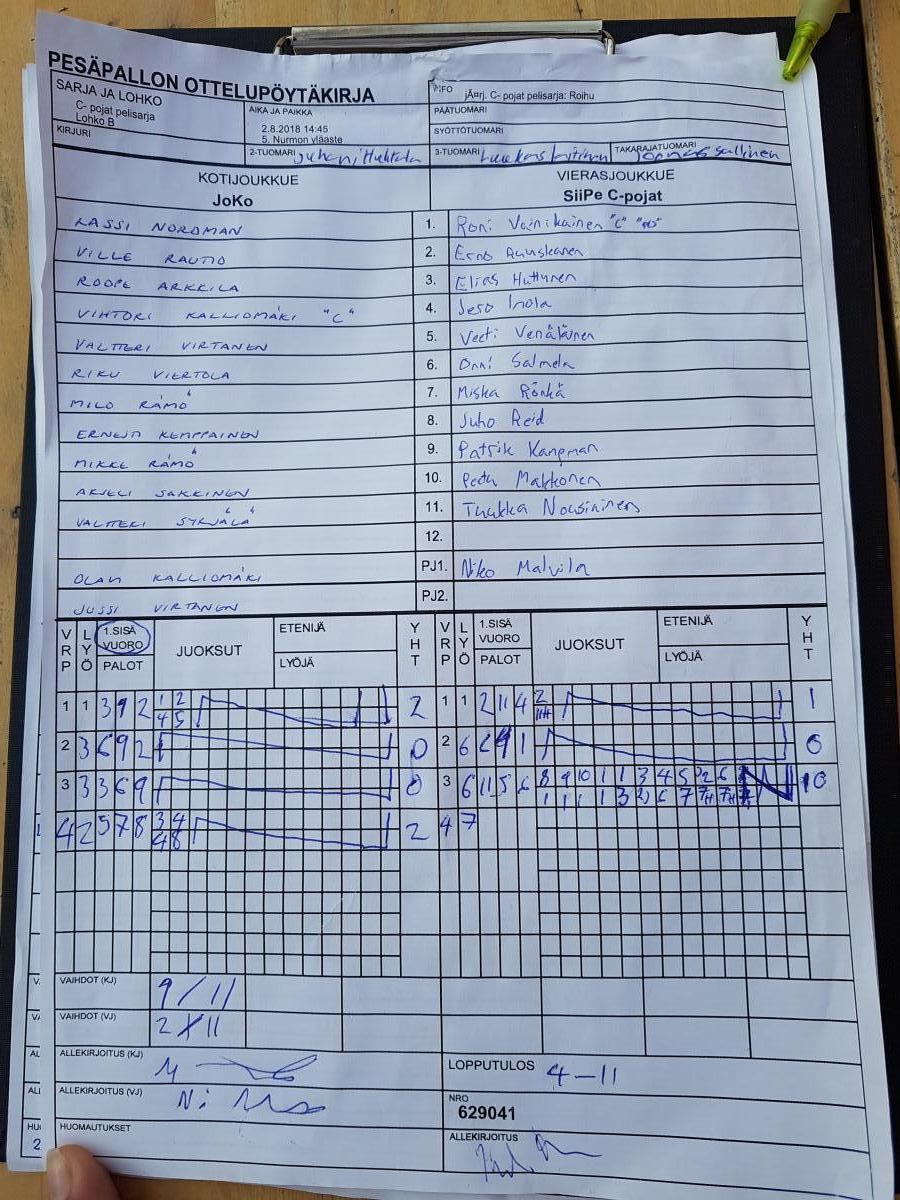 PESÄPALLON OTTELUPÖYTÄKIRJA
SARJA JA LOHKO
C- pojat pelisarja
Lohko B
AIKA JA PAIKKA
2.8.2018 14:45
5. Nurmon yläaste
INFO
jÃ¤rj. C- pojat pelisarja: Roihu
PÄÄTUOMARI
SYÖTTÖTUOMARI
KIRJURI
2-TUOMARI Juhani Huhtala
3-TUOMARI
TAKARAJATUOMARI Joonas Sallinen
KOTIJOUKKUE
JoKo
VIERASJOUKKUE
SiiPe C-pojat
LASSI NORDMAN 1. Roni Vainikainen "C"
VILLE RAUTIO 2. Eino
ROOPE ARKKILA 3. Elias Huttunen
VIHTORI KALLIOMÄKI "C" 4. Jeso Inola
VALTTERI VIRTANEN 5. Veeti Venäläinen
RIKU VIERTOLA 6. Onni Salmela
MILO RÄMÖ 7. Miska Rönkä
ERNESTI KEMPPAINEN 8. Juho Reid
MIKKE RÄMÖ 9. Patrik Kangman
AKSELI SAKKINEN 10. Peetu Makkonen
VALTTERI SYRJÄLÄ 11. Tuukka Nousiainen
12.
OLAVI KALLIOMÄKI PJ1. Niko Malvila
JUSSI VIRTANEN PJ2.
VRP LYÖ 1.SISÄ VUORO PALOT JUOKSUT ETENIJÄ LYÖJÄ YHT VRP LYÖ 1.SISÄ VUORO PALOT JUOKSUT ETENIJÄ LYÖJÄ YHT
1 1 3 9 2 1 2 2 1 1 2 11 4 2 1
4 5
2 3 6 9 2 0 2 6 9 1 0
3 3 3 6 9 0 3 6 11 5 6 8 9 10 1 1 3 4 5 2 6 10
1 1 1 1 3 6 7
4 2 5 7 8 3 4 2 4 7
4 8
VAIHDOT (KJ) 9/11
VAIHDOT (VJ) 2/11
ALLEKIRJOITUS (KJ)
LOPPUTULOS 4-11
ALLEKIRJOITUS (VJ)
NRO
629041
HUOMAUTUKSET
ALLEKIRJOITUS